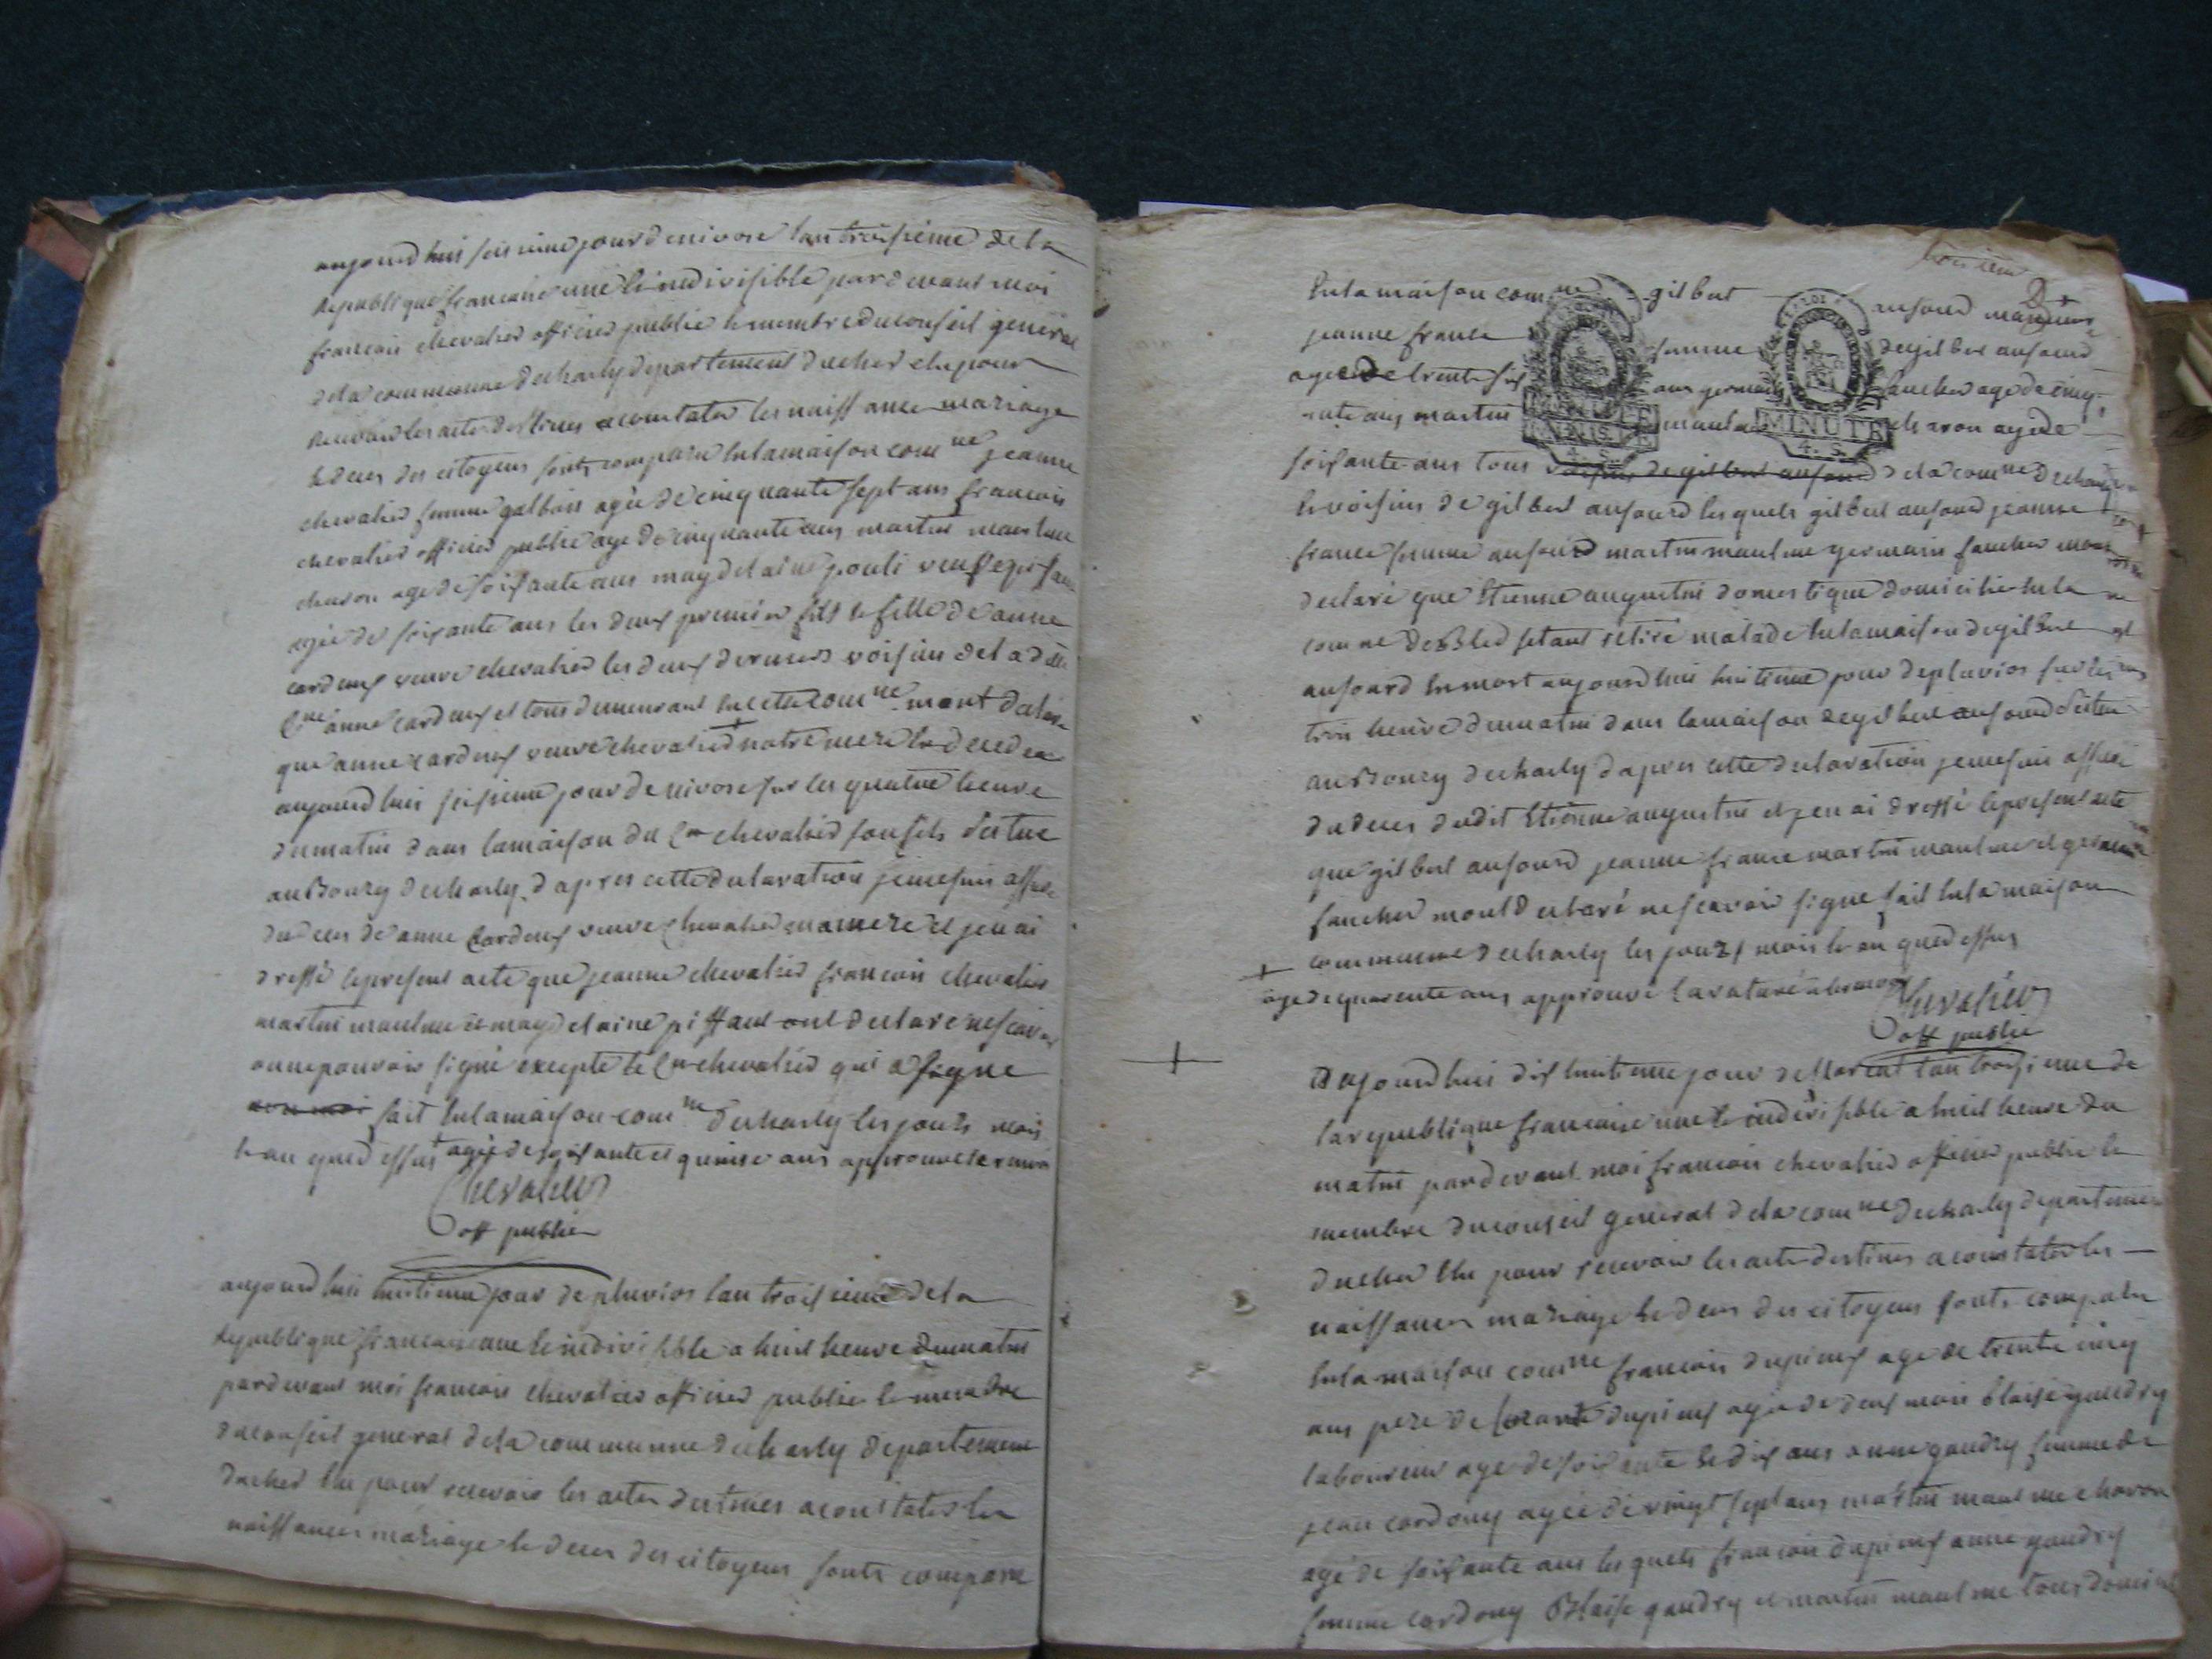 aujourdhui seisieme jour de nivose lan troisieme de la
Republique francaise une & indivisible pardevant moi
francois chevalier officier public & membre du conseil general
de la commune de charly departement du cher elu pour
recevoir les actes destines a constater les naissance mariage
& deces des citoyens sonts comparu en la maison com ne jeanne
chevalier femme galbois agée de cinquante sept ans francois
chevalier officier public age de cinquante ans martin maulme
charon age de soisante ans magdelaine veuf
agée de soisante ans les deux premier fils & fille de anne
cardeux veuve chevalier les deux derniers voisins de la dite
Cne anne cardeux et tous demeurant en cette com ne mont declare
que anne cardeux veuve chevalier + notre mere est decedee
aujourdhui seisieme jour de nivose sur les quatre heure
du matin dans la maison du Cn chevalier son fils situe
au Bourg de charly. d apres cette declaration je me suis assure
du deces de anne Cardeux veuve chevalier ma mere et jen ai
dressé le present acte que jeanne chevalier francois chevalier
martin maulme & magdelaine piffaut ont declare ne scavoir
ou ne pouvoir signé excepte le Cn chevalier qui a signe
avec moi fait en la maison com ne de charly les jours mois
& an que dessus + agée de soisante et quinse ans approuve
Chevalier
off public
aujourdhui huitieme jour de pluvios lan troisieme de la
Republique francaise une & indivisible a huit heure du matin
pardevant moi francois chevalier officier public & membre
du conseil general de la commune de charly departement
du cher elu pour recevoir les actes destines a constater les
naissances mariage & deces des citoyens sonts comparu
troisieme
2
en la maison com ne gilbert aufourd
jeanne france femme de gilbert aufourd
agee de trente six ans germain faucher age de cinq
uante ans martin maulme charon age de
MINUTE
4. S.
MINUTE
4. S.
soisante ans tous voisins de gilbert aufourd de la com ne de charly
& voisins de gilbert aufourd les quels gilbert aufourd jeanne
france femme aufourd martin maulme germain faucher mont
declaré que Etienne augustin domestique domicilié en la
com ne de Bled setant retiré malade en la maison de gilbert
aufourd & mort aujourdhui huitieme jour de pluvios sur les
trois heure du matin dans la maison de gilbert aufourd située
au Bourg de charly d apres cette declaration je me suis assuré
du deces dudit Etienne augustin et jen ai dressé le present acte
que gilbert aufourd jeanne france martin maulme et germain
faucher mont declaré ne scavoir signe fait en la maison
commune de charly les jours mois & an que dessus
+ age de quarente ans approuvé
Chevalier
off public
+
Aujourdhui dix huitieme jour de floreal lan troisieme de
la republique francaise une & indivisible a huit heure du
matin pardevant moi francois chevalier officier public &
membre du conseil general de la com ne de charly departement
du cher elu pour recevoir les actes destines a constater les
naissances mariage & deces des citoyens sonts comparu
en la maison com ne francois dupieux age de trente cinq
ans pere de dupieux agée de deux mois blaise gaudry
laboureur age de soisante & dix ans anne gaudry femme de
jean cardony agée de vingt sept ans martin maulme charon
agé de soisante ans les quels francois dupieux anne gaudry
femme cardony Blaise gaudry et martin maulme tous domicilié